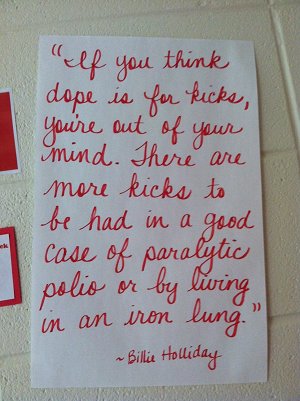 "If you think
dope is for kicks,
you're out of your
mind. There are
more kicks to
be had in a good
case of paralytic
polio or by living
in an iron lung."
~ Billie Holliday
ck